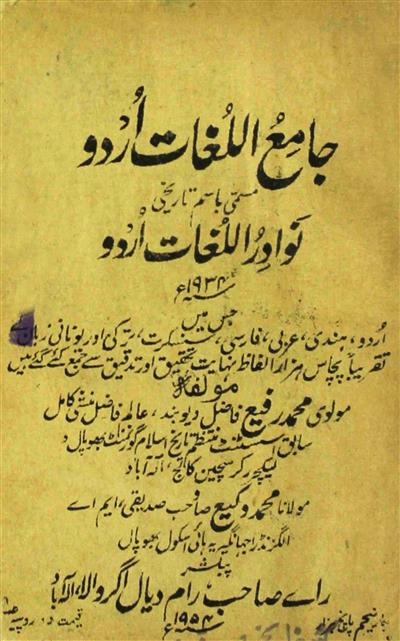 جامعُ اللُغات اُردو
مسمیٰ باسم تاریخی
نَوادِرُ اللُغات اُردو
۱۹۳۴ء
جس میں
اُردو، ہندی، عربی، فارسی، سنسکرت، ترکی اور یونانی زبان کے
تقریباً پچاس ہزار الفاظ نہایت تحقیق اور تدقیق سے جمع کئے گئے ہیں
مولفہ
مولوی محمد رفیع فاضل دیوبند، عالم فاضل منشی کامل
سابق اسسٹنٹ منتظم تاریخ اسلام گورنمنٹ بھوپال و
لیکچرر کرسچین کالج، الہ آباد
مولانا محمد وکیع صاحب صدیقی، ایم اے
الگزنڈرا جہانگیریہ ہائی اسکول بھوپال
پبلشر
رائے صاحب رام دیال اگروالا، الہ آباد
۱۹۵۴ء
قیمت ۱۵ روپیہ